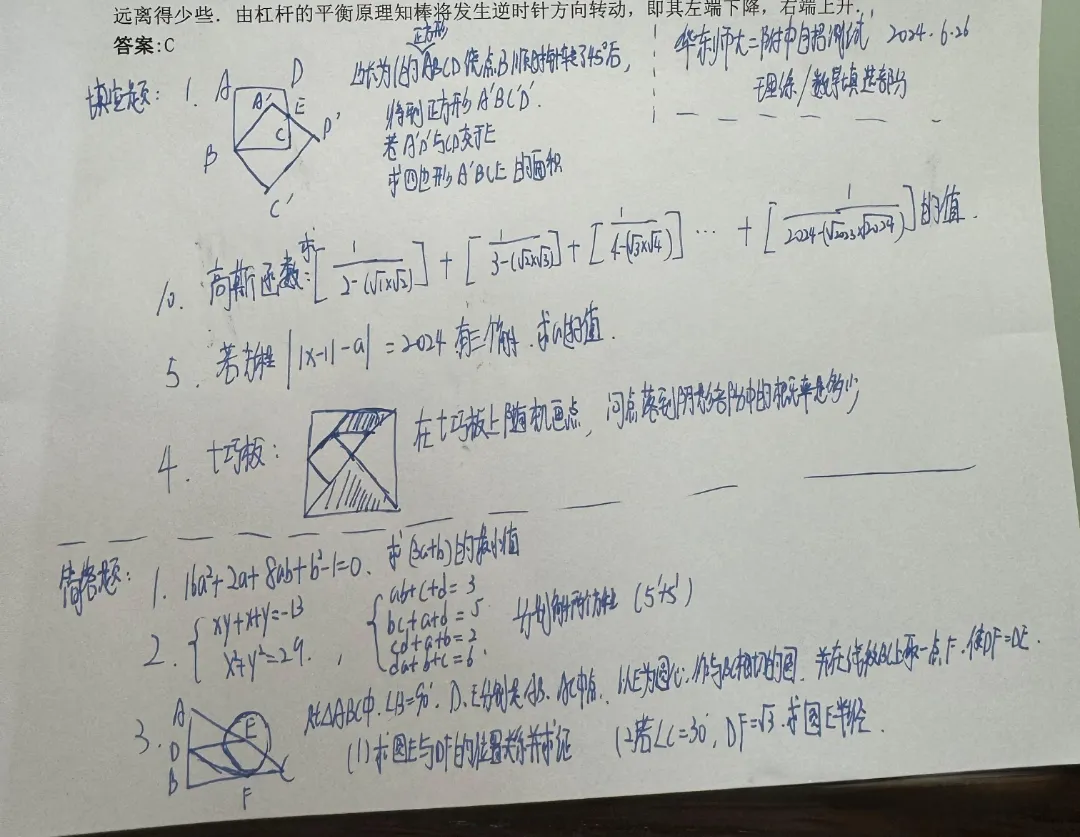 远离得少些．由杠杆的平衡原理知棒将发生逆时针方向转动，即其左端下降，右端上升．
答案:C
华东师大二附中自招测试 2024.6.26
理综/数学填选部分
填空题：1. 边长为1的正方形ABCD绕点B顺时针转了45°后，
得到正方形A'BC'D'.
若A'D'与CD交于E
求四边形A'BCE的面积
A D A' E D' C B C'
10. 高斯函数:求[1/(2-(√1×√2))] + [1/(3-(√2×√3))] + [1/(4-(√3×√4))] … + [1/(2024-(√2023×√2024))]的值.
5. 若方程||x-1|-a|=2024有三个解.求a的值.
4. 七巧板: 在七巧板上随机画点，问点落到阴影部分中的概率是多少
简答题: 1. 16a²+2a+8ab+b²-1=0、求(3a+b)的最小值
2. { xy+x+y=-13
x²+y²=29. ,
{ ab+c+d=3
bc+a+d=5
cd+a+b=2
da+b+c=6.
分别解两个方程 (5'+5')
3. Rt△ABC中.∠B=90°.D、E分别是AB、AC中点.以E为圆心.作与BC相切的圆.并在线段BC上取一点F.使DF=DE.
(1)求圆E与DF的位置关系并求证 (2)若∠C=30°,DF=√3.求圆E半径.
A D B E C F